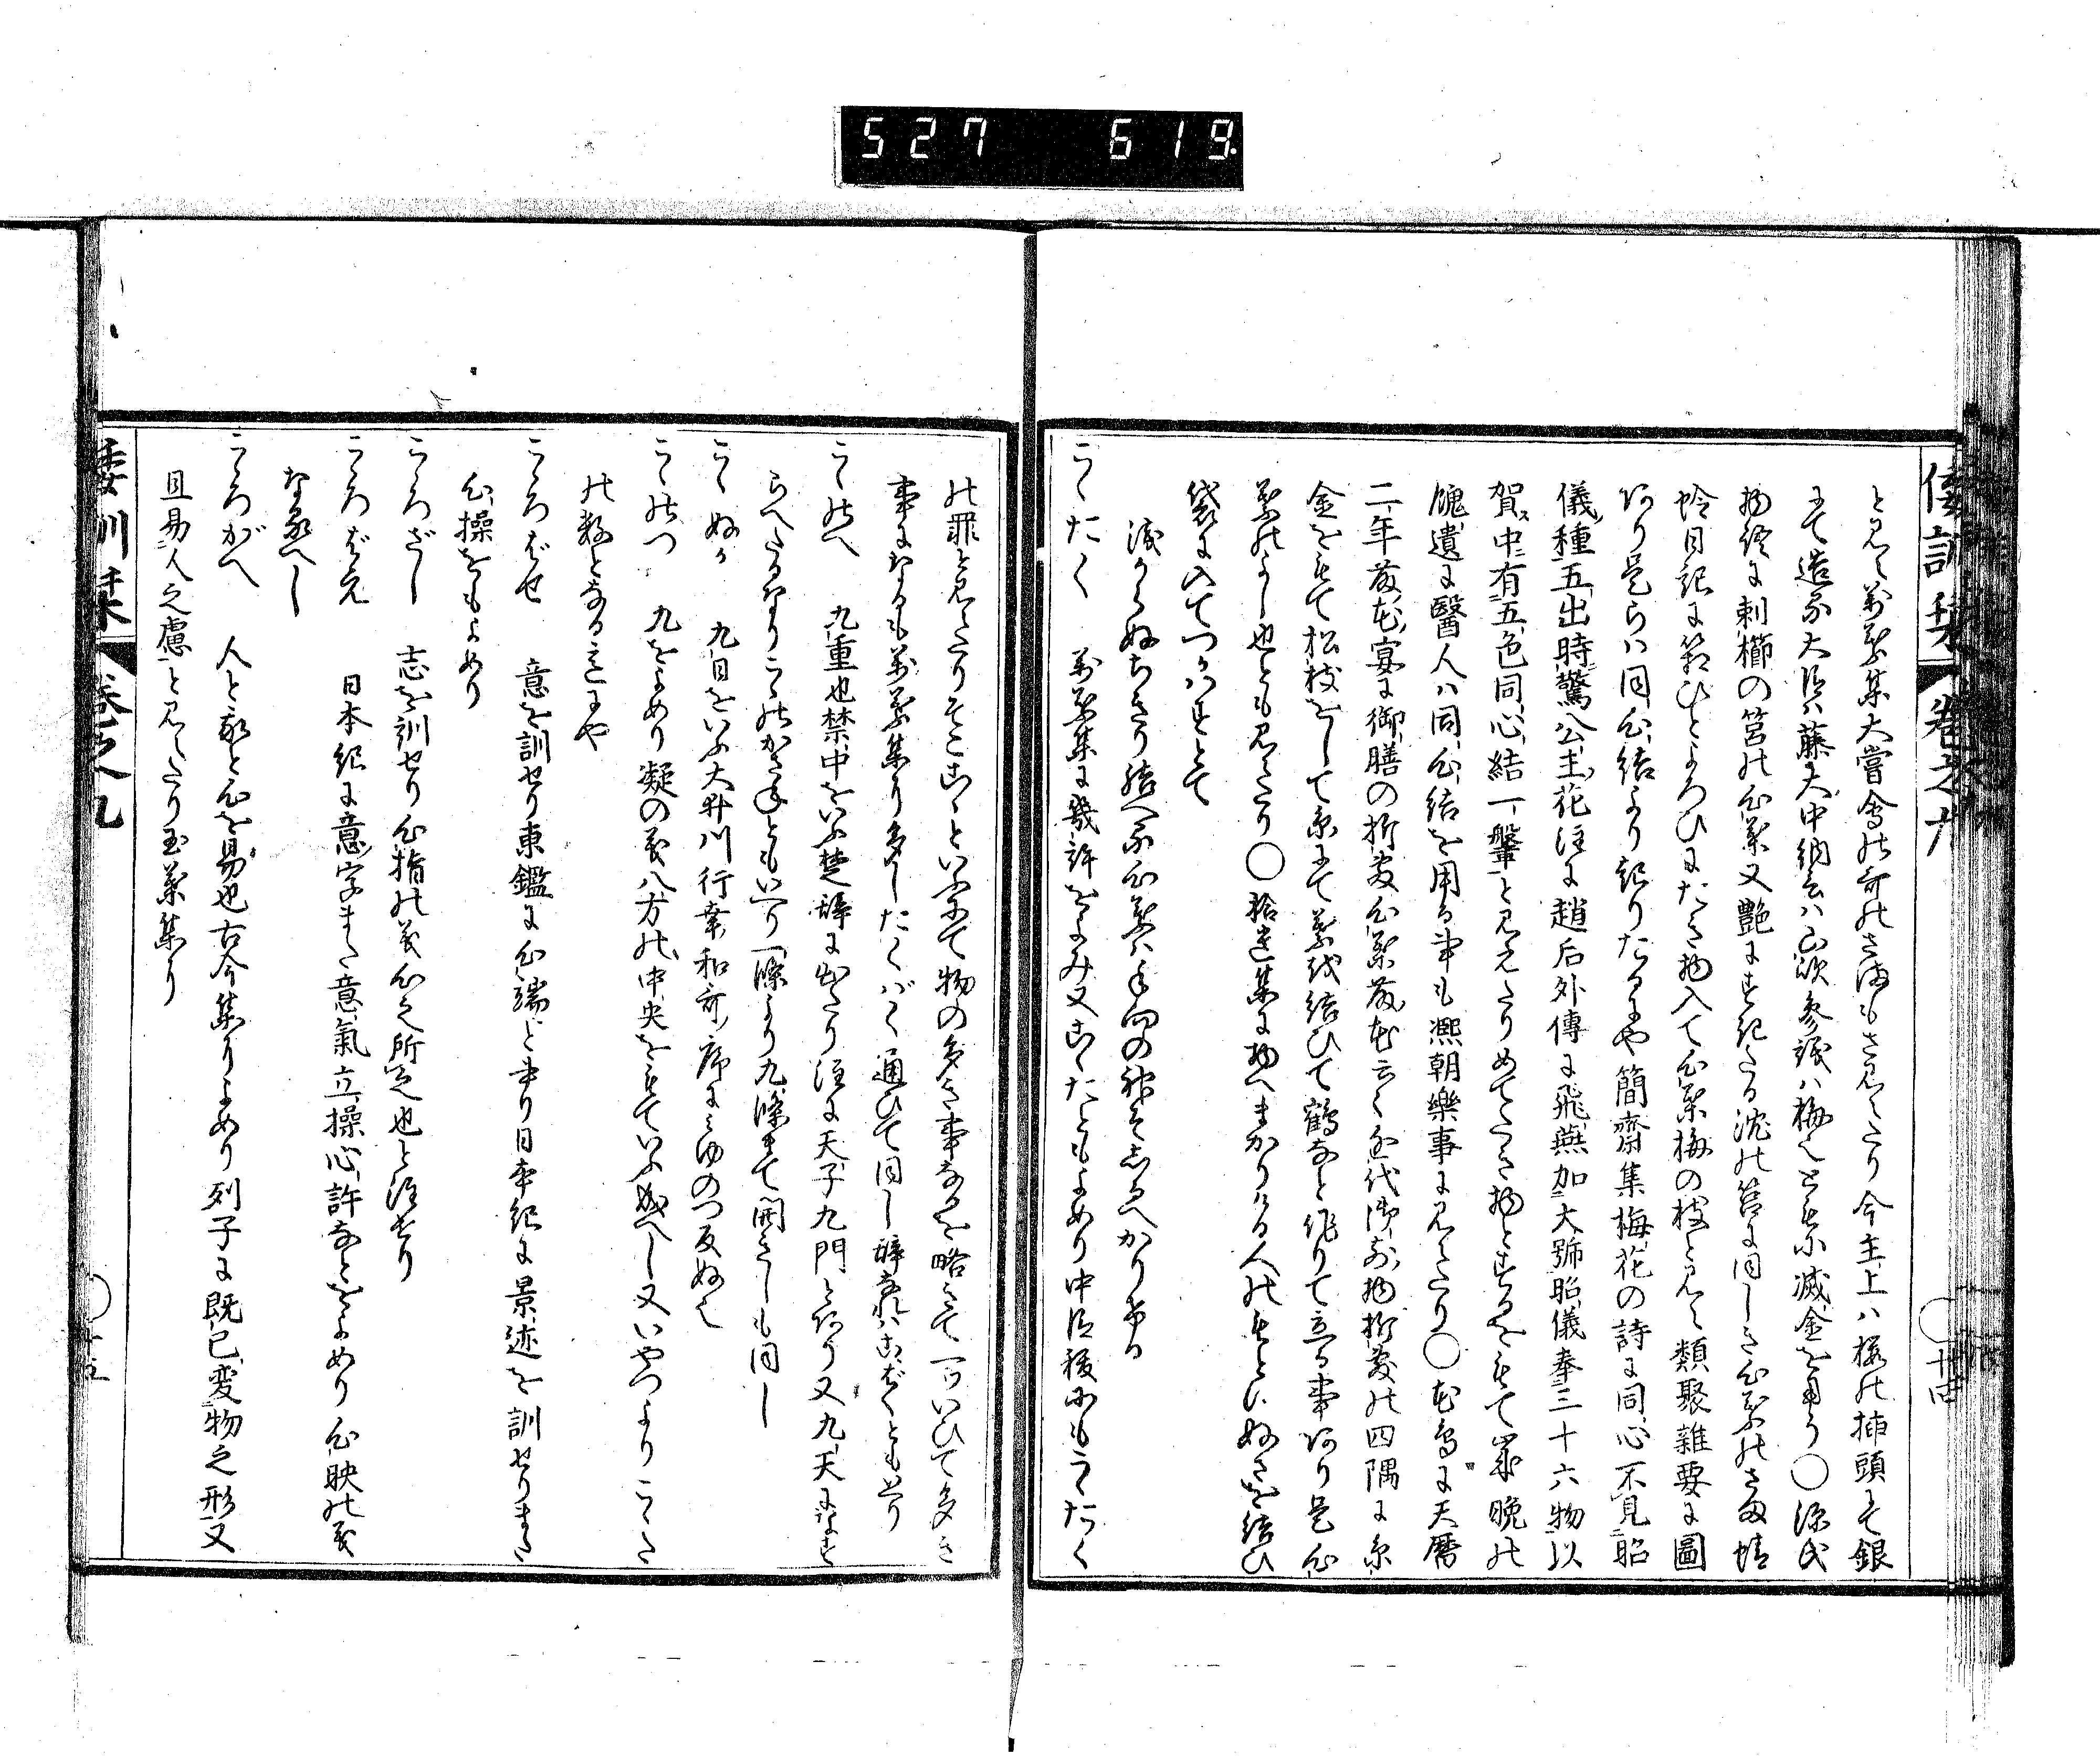 527 619
倭訓栞 卷之九 ○十四
と見え萬葉集大嘗會の哥のさまもさ見えたり今主上ハ桜の揷頭にて銀
にて造る大臣ハ藤大中納言ハ山吹参議ハ梅也とも小滅金を用う○源氏
物語に刺櫛の筥の心葉又艶にすきたる沈の筥に同しき心葉のさま蜻
蛉日記に箱ひとよろひにたき物入て心葉梅の枝と見え類聚雜要に圖
あり是らハ同心結より起りたるにや簡齋集梅花の詩に同心不見昭
儀種五出時驚公主花注に趙后外傳に飛燕加大號昭儀奉三十六物以
賀中有五色同心結一盤と見えたりめてたき物とするをもて歳晩の
餽遺に醫人ハ同心結を用る事も熙朝樂事に見えたり○花鳥に天暦
二年藤花宴に御膳の折敷心葉藤花云々近代御前物折敷の四隅に糸
金をもて松枝をして糸にて葉を結ひて鶴なと作りて立る事あり是心
葉のよし也とも見えたり○拾遺集に物へまかりける人のもとにぬさを結ひ
袋に入てつかハすとて
浅からぬちきり結へる心葉ハ手向の神そしるへかりける
こゝたく 萬葉集に幾許をよみ又こゝたともよめり中臣祓にもこゝたく
の罪と見えたりそこはくといふにて物の多き事なるを略して下いひて多き
事になるも萬葉集に多したくばく通ひて同し辭なれハこゝばくともいへり
こゝのへ 九重也禁中をいふ楚辭に出たり注に天子九門とあり又九天になす
らへたるなりこゝのかさねともいへり一條より九條まて開きしも同し
こゝぬか 九日をいふ大井川行幸和哥序にみゆのつ反ぬ也
こゝのつ 九をよめり凝の義八方の中央をもていふ成へし又いやつよりこゝた
の数となる意にや
こゝろばせ 意を訓せり東鑑に心端とかけり日本紀に景迹を訓せりまた
心操をもよめり
こゝろざし 志を訓せり心指の義心之所之也と注せり
こゝろばえ 日本紀に意字また意氣立操心許なとをよめり心映の義
なるへし
こゝろがへ 人と我と心を易也古今集によめり列子に既已変物之形又
且易人之慮と見えたり玉葉集に
倭訓栞 卷之九 ○十五